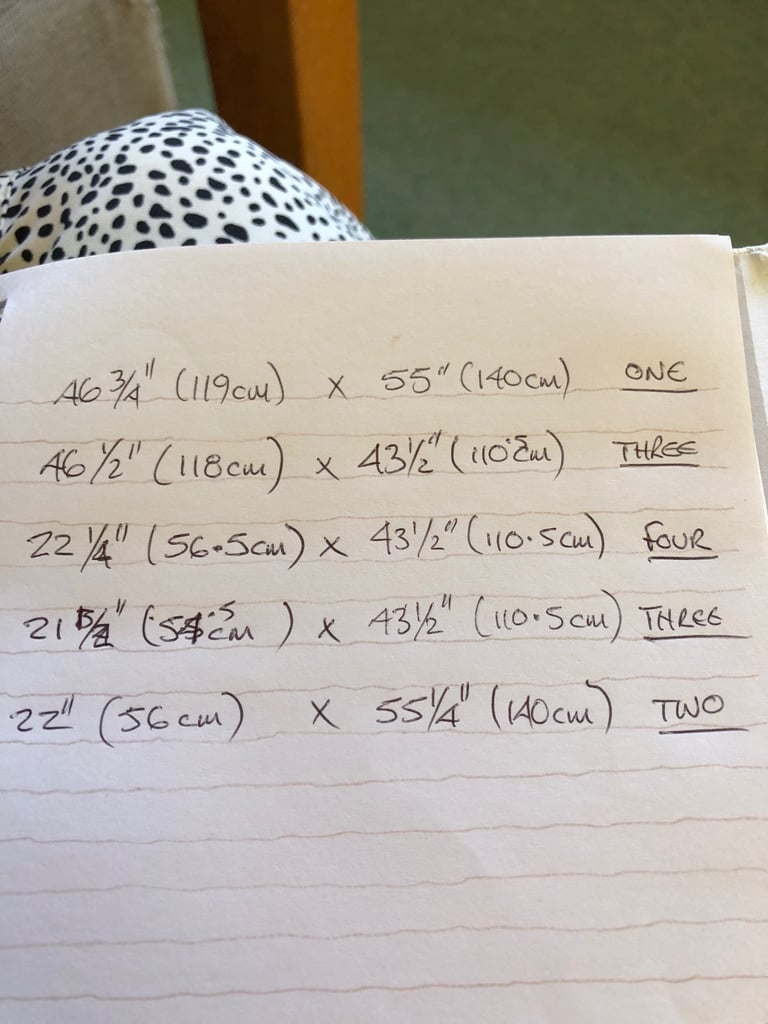 46 3/4" (119cm) x 55" (140cm) ONE
46 1/2" (118cm) x 43 1/2" (110.5cm) THREE
22 1/4" (56.5cm) x 43 1/2" (110.5cm) FOUR
21 ( cm) x 43 1/2" (110.5cm) THREE
22" (56cm) x 55 1/4" (140cm) TWO